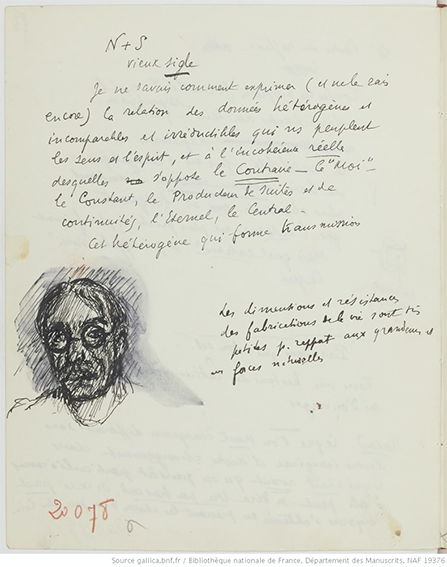 N + S
vieux sigle
Je ne savais comment exprimer (et ne le sais
encore) la relation des données hétérogènes et
incomparables et irréductibles qui ns peuplent
les sens et l'esprit, et à l'incohérence réelle
desquelles s'oppose le Contraire — Le "Moi" —
le Constant, le Producteur de suites et de
continuités, l'Eternel, le Central —
Cet hétérogène qui forme transmission
Les dimensions et résistances
des fabrications de la vie sont très
petites p. rappt aux grandeurs et
forces naturelles
20078
6
Source gallica.bnf.fr / Bibliothèque nationale de France, Département des Manuscrits, NAF 19376